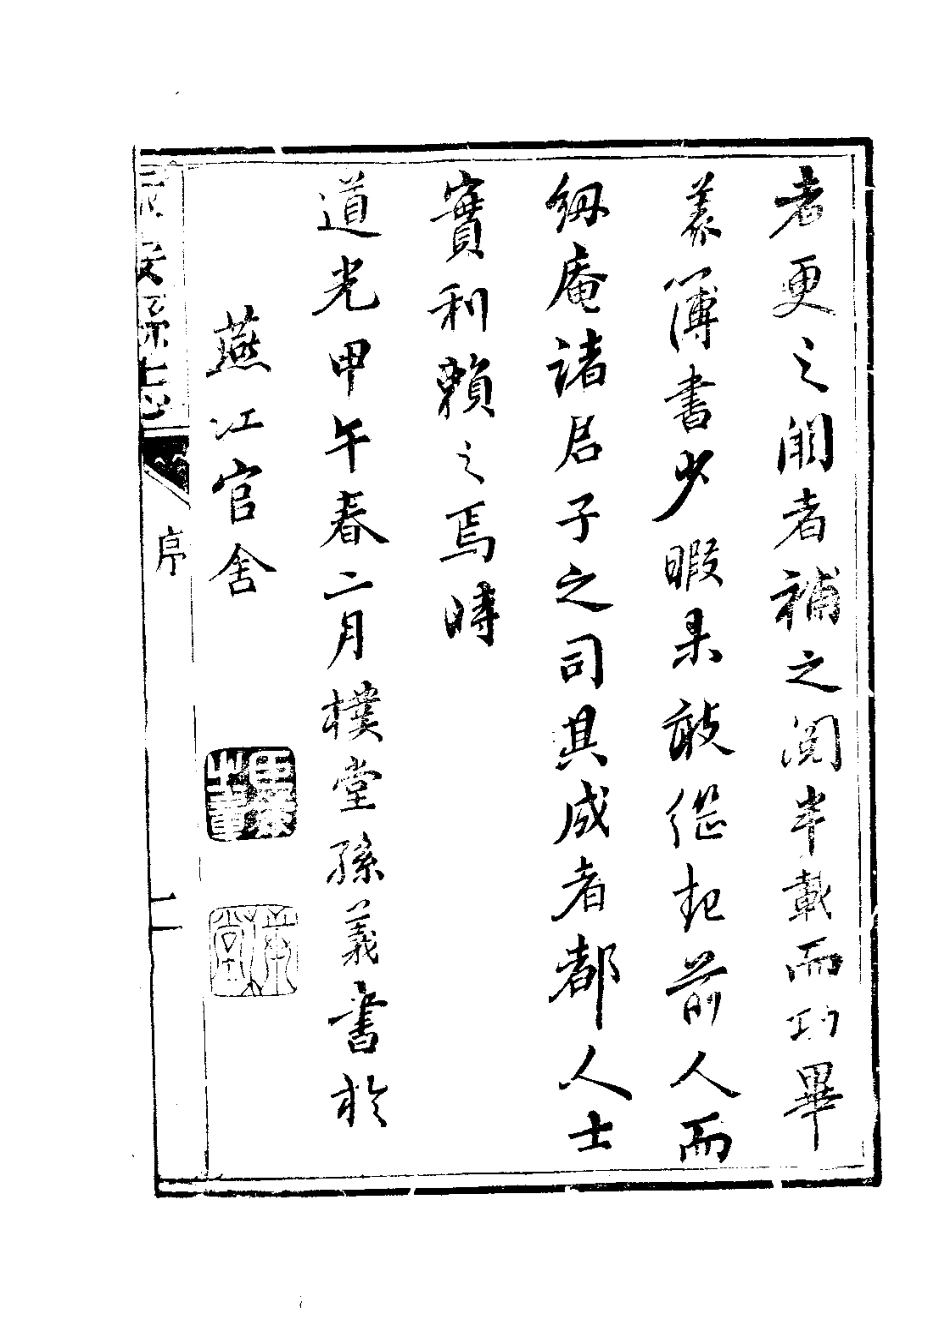 者更之闕者補之閲半載而功畢
義簿書少暇果敢繼起前人而
紉庵諸君子之司其成者都人士
實利賴之焉時
道光甲午春二月樸堂孫義書於
燕江官舍
序
二